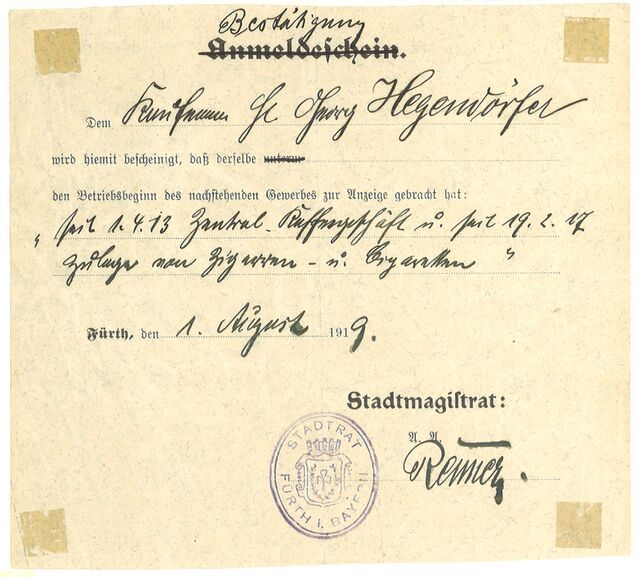 Bestätigung
Anmeldeschein.
Dem Kaufmann H Georg Hegendörfer
wird hiemit bescheinigt, daß derselbe unterm
den Betriebsbeginn des nachstehenden Gewerbes zur Anzeige gebracht hat:
„ seit 1.4.13 Zentral-Kaffeegeschäft u. seit 19. 2. 17
Zulage von Zigarren- u. Cigaretten "
Fürth, den 1. August 1919.
Stadtmagistrat:
STADTRAT
FÜRTH i. BAYERN